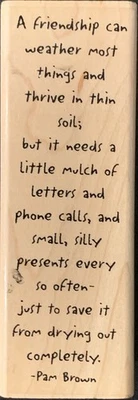 A friendship can
weather most
things and
thrive in thin
soil;
but it needs a
little mulch of
letters and
phone calls, and
small, silly
presents every
so often-
just to save it
from drying out
completely.
-Pam Brown